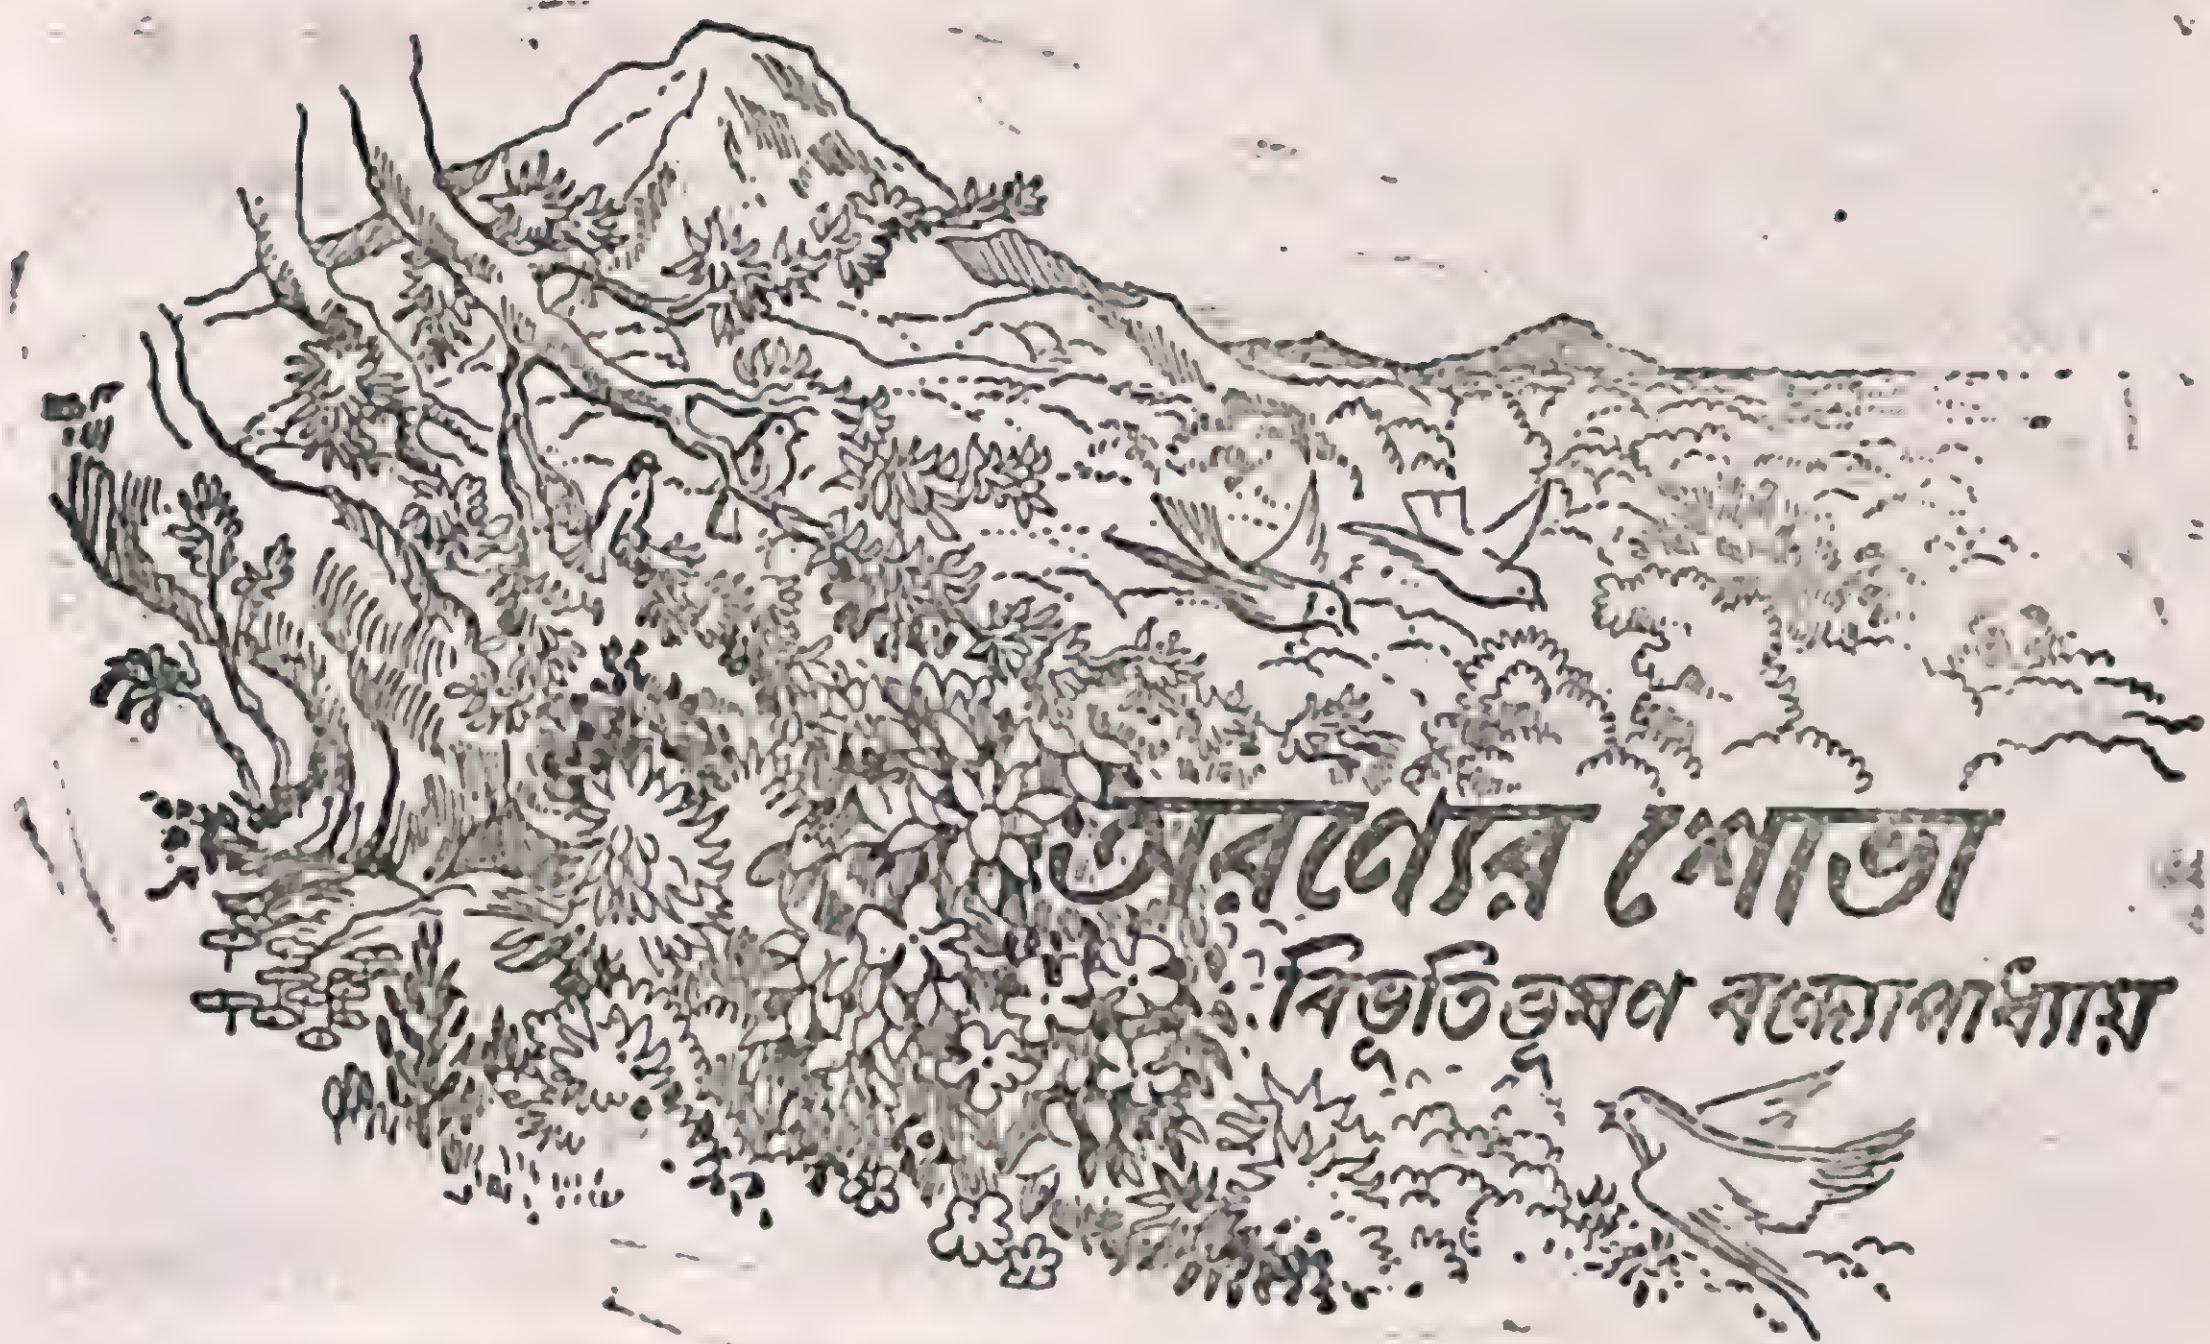 অরণ্যের শোভা
বিভূতিভূষণ বন্দ্যোপাধ্যায়